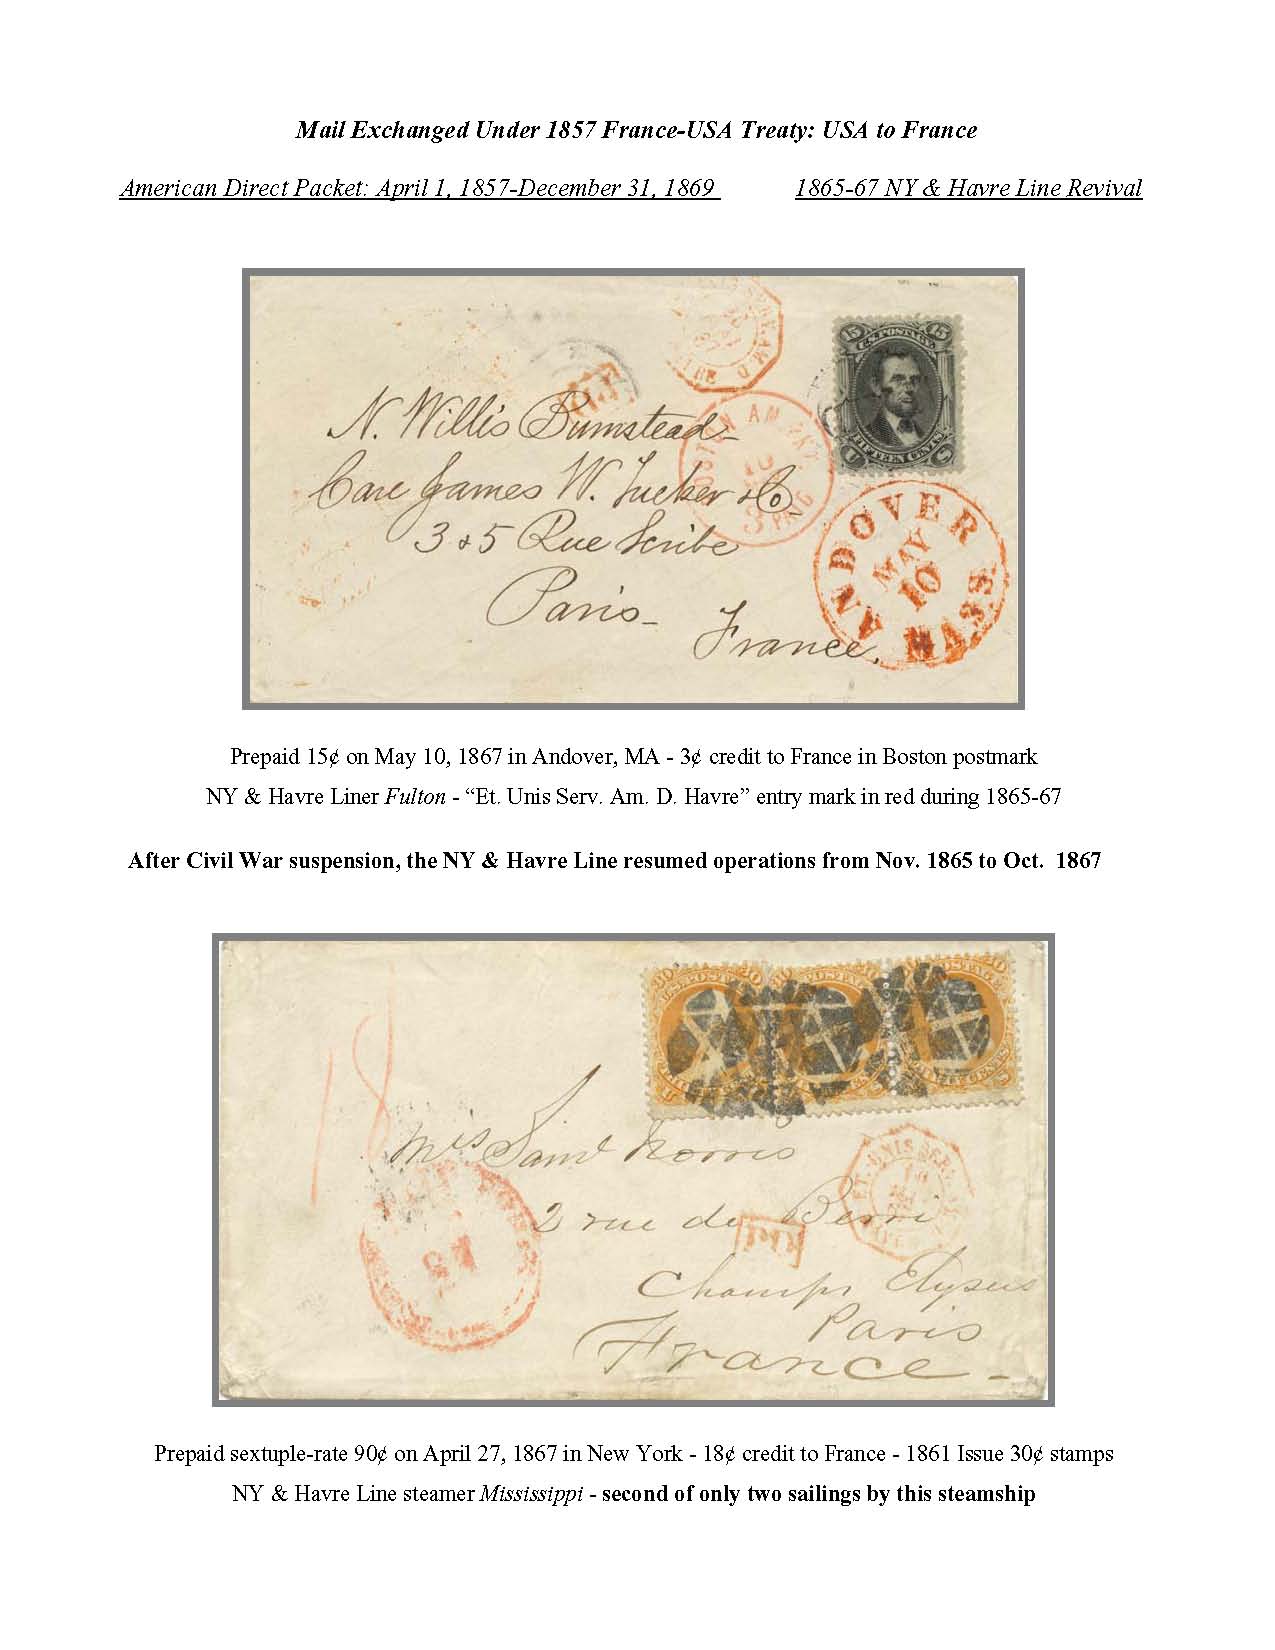 Mail Exchanged Under 1857 France-USA Treaty: USA to France
American Direct Packet: April 1, 1857-December 31, 1869 1865-67 NY & Havre Line Revival
15 U.S. POSTAGE 15
FIFTEEN CENTS
U S
BOSTON AM. PKT.
10
3 PAID
N. Willis Bumstead
Care James W. Tucker & Co.
3 & 5 Rue Scribe
Paris
France.
ANDOVER
MAY
10
MASS
Prepaid 15¢ on May 10, 1867 in Andover, MA - 3¢ credit to France in Boston postmark
NY & Havre Liner Fulton - “Et. Unis Serv. Am. D. Havre” entry mark in red during 1865-67
After Civil War suspension, the NY & Havre Line resumed operations from Nov. 1865 to Oct. 1867
18
30 U.S. POSTAGE 30
ET. UNIS SER.
Mrs Saml Norris
2 rue de Berri
Champs Elysees
Paris
France
Prepaid sextuple-rate 90¢ on April 27, 1867 in New York - 18¢ credit to France - 1861 Issue 30¢ stamps
NY & Havre Line steamer Mississippi - second of only two sailings by this steamship